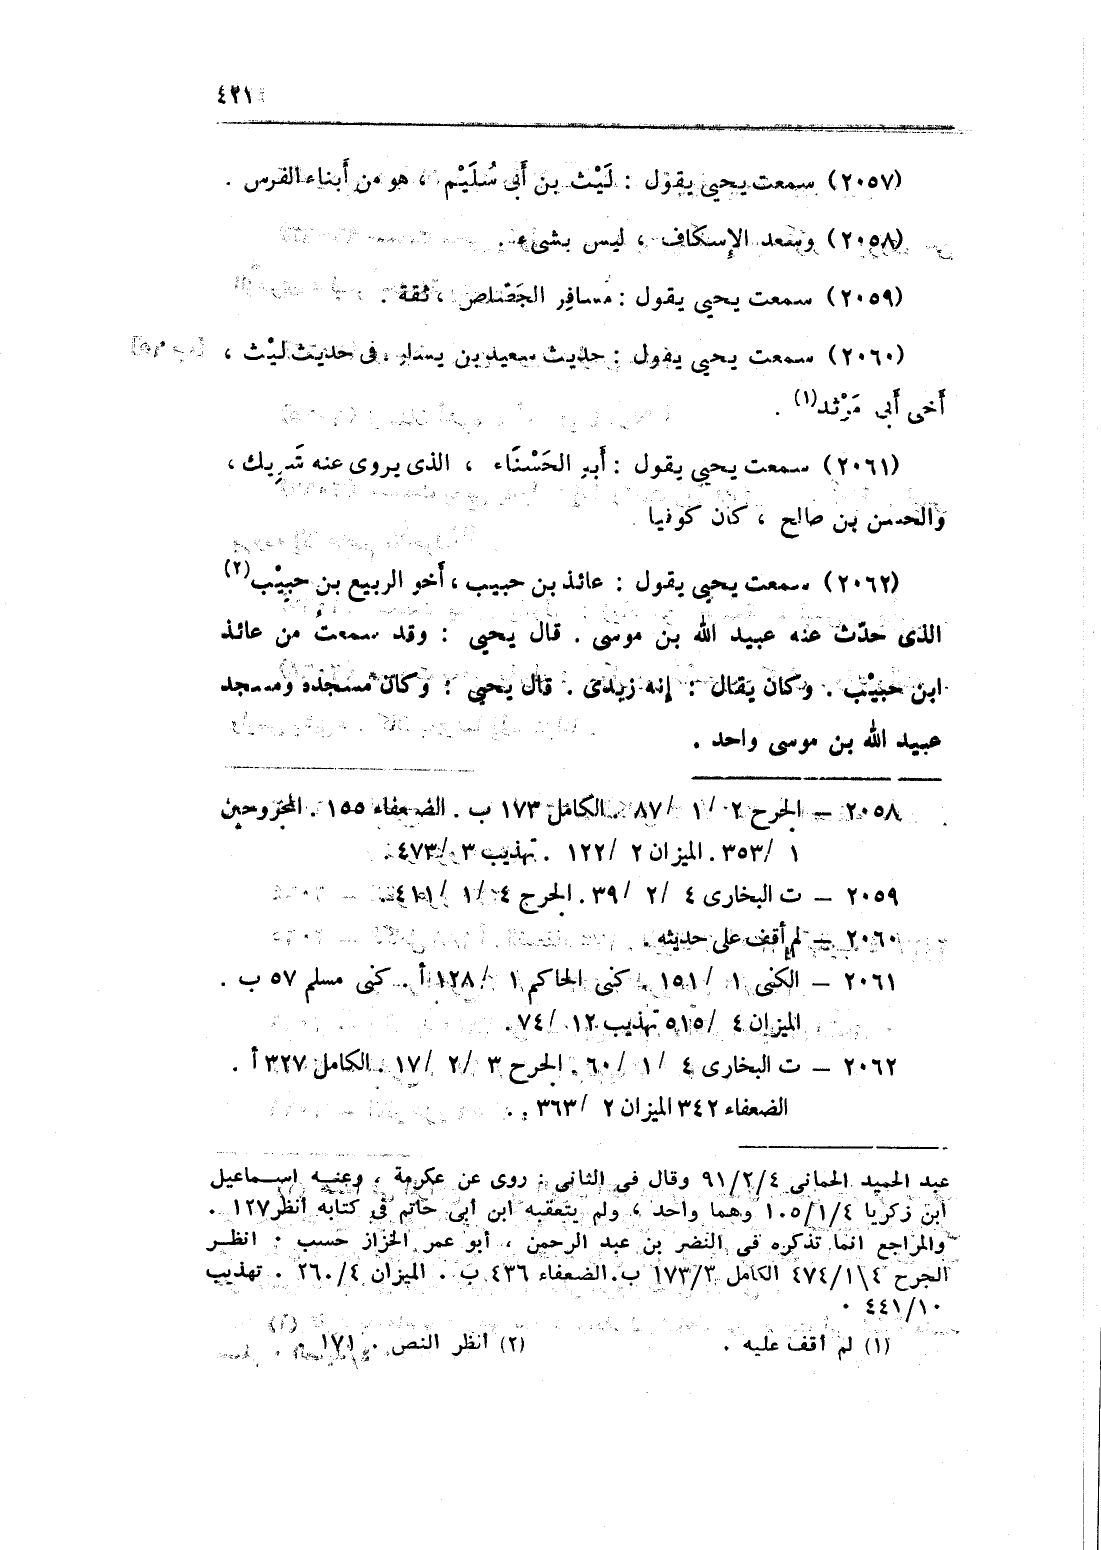 ٤٢١
(٢٠٥٧) سمعت يحيى يقول : لَيْث بن أَبى سُلَيْم ، هو من أَبناء الفرس .
(٢٠٥٨) وسعد الإِسكاف ، ليس بشىء .
(٢٠٥٩) سمعت يحيى يقول : مُسافِر الجَصّاص ، ثقة .
(٢٠٦٠) سمعت يحيى يقول : حديث سعيد بن يسار ، فى حديث ليْث ،
أَخى أَبى مَرْثد(١) .
(٢٠٦١) سمعت يحيى يقول : أَبو الحَسْنَاء ، الذى يروى عنه شَرِيك ،
والحسن بن صالح ، كان كوفيا .
(٢٠٦٢) سمعت يحيى يقول : عائذ بن حبيب ، أَخو الربيع بن حبيْب(٢)
الذى حدّث عنه عبيد الله بن موسى . قال يحيى : وقد سمعتُ من عائذ
ابن حبيْب . وكان يقال : إِنه زيدى . قال يحيى : وكان مسجده ومسجد
عبيد الله بن موسى واحد .
٢٠٥٨ – الجرح ٢ / ١ / ٨٧ . الكامل ١٧٣ ب . الضعفاء ١٥٥ . المجروحين
١ / ٣٥٣ . الميزان ٢ / ١٢٢ . تهذيب ٣ / ٤٧٣ .
٢٠٥٩ – ت البخارى ٤ / ٢ / ٣٩ . الجرح ٤ / ١ / ٤١١ .
٢٠٦٠ – لم أقف على حديثه .
٢٠٦١ – الكنى ١ / ١٥١ . كنى الحاكم ١ / ١٢٨ أ . كنى مسلم ٥٧ ب .
الميزان ٤ / ٥١٥ تهذيب ١٢ / ٧٤ .
٢٠٦٢ – ت البخارى ٤ / ١ / ٦٠ . الجرح ٣ / ٢ / ١٧ . الكامل ٣٢٧ أ .
الضعفاء ٣٤٢ الميزان ٢ / ٣٦٣ .
عبد الحميد الحمانى ٩١/٢/٤ وقال فى الثانى : روى عن عكرمة ، وعنه اسماعيل
ابن زكريا ١٠٥/١/٤ وهما واحد ، ولم يتعقبه ابن أبى حاتم فى كتابه أنظر ١٢٧ .
والمراجع انما تذكره فى النضر بن عبد الرحمن ، أبو عمر الخزاز حسب . انظر
الجرح ٤\٤٧٤/١ الكامل ١٧٣/٣ ب . الضعفاء ٤٣٦ ب . الميزان ٢٦٠/٤ . تهذيب
٤٤١/١٠ .
(١) لم أقف عليه . (٢) أنظر النص . ١٧١ .